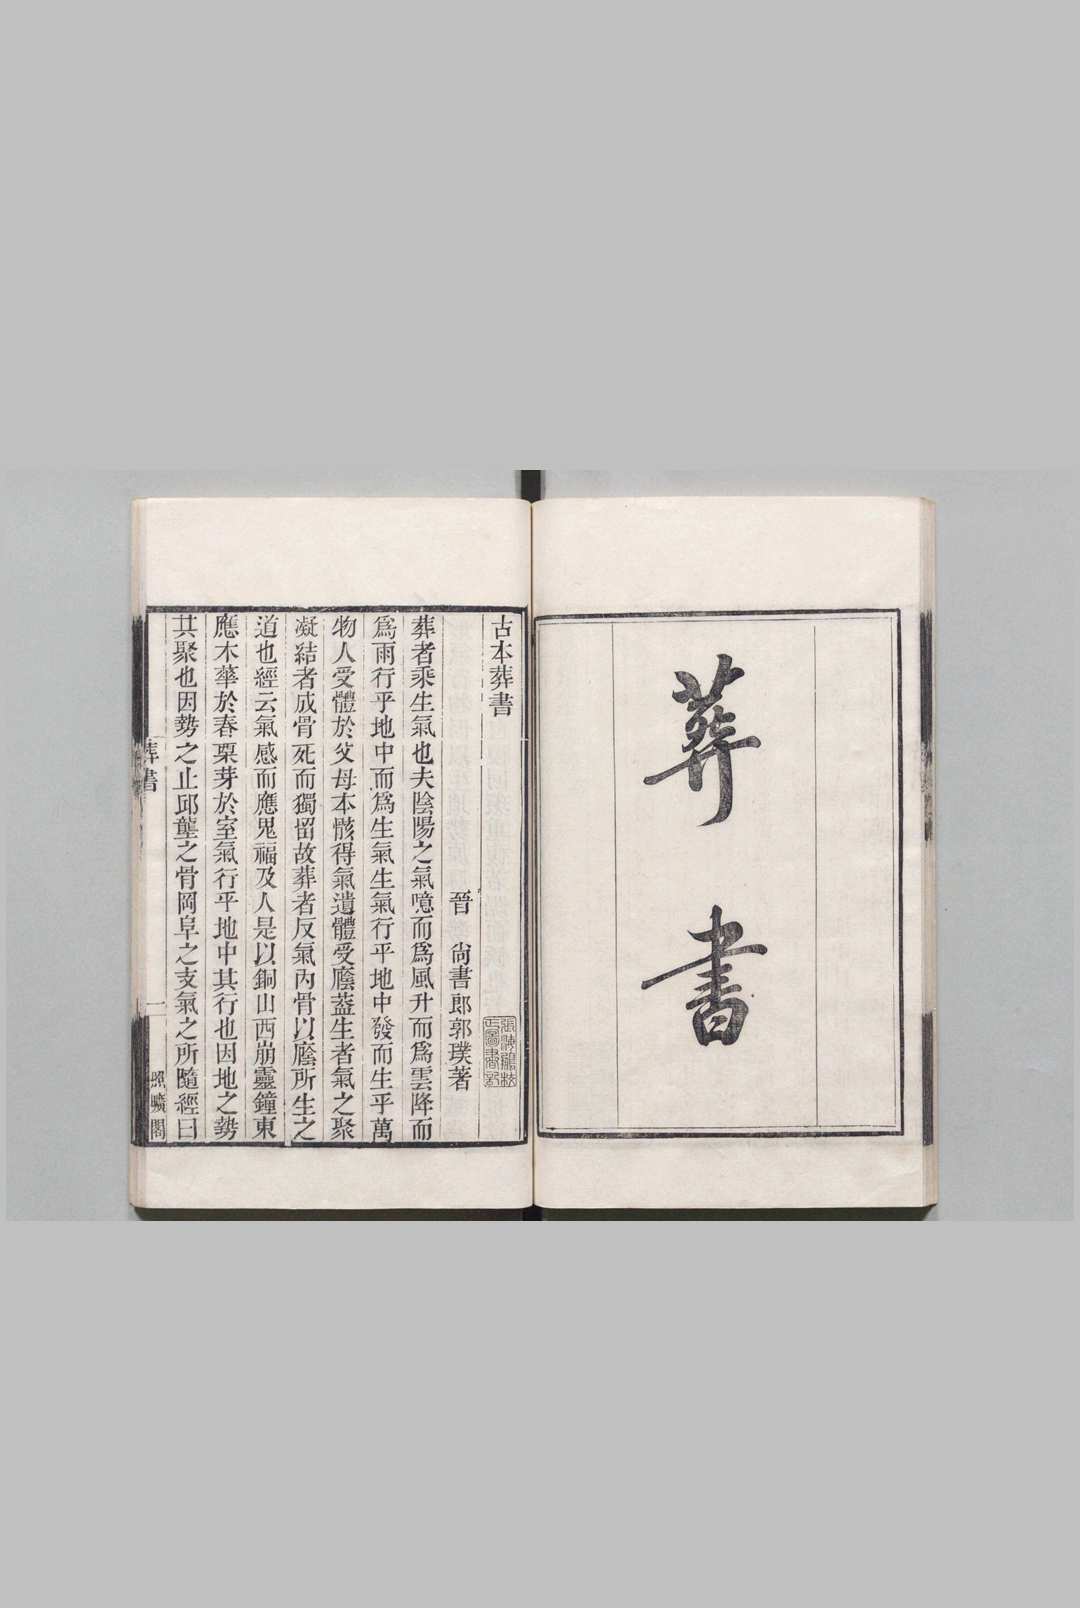 葬書
古本葬書
晉 尙書郎郭璞著
葬者乘生氣也夫陰陽之氣噫而爲風升而爲雲降而
爲雨行乎地中而爲生氣生氣行乎地中發而生乎萬
物人受體於父母本骸得氣遺體受廕葢生者氣之聚
凝結者成骨死而獨留故葬者反氣內骨以廕所生之
道也經云氣感而應鬼福及人是以銅山西崩靈鐘東
應木華於春栗芽於室氣行乎地中其行也因地之勢
其聚也因勢之止邱壟之骨岡阜之支氣之所隨經曰
葬書
一
照曠閣